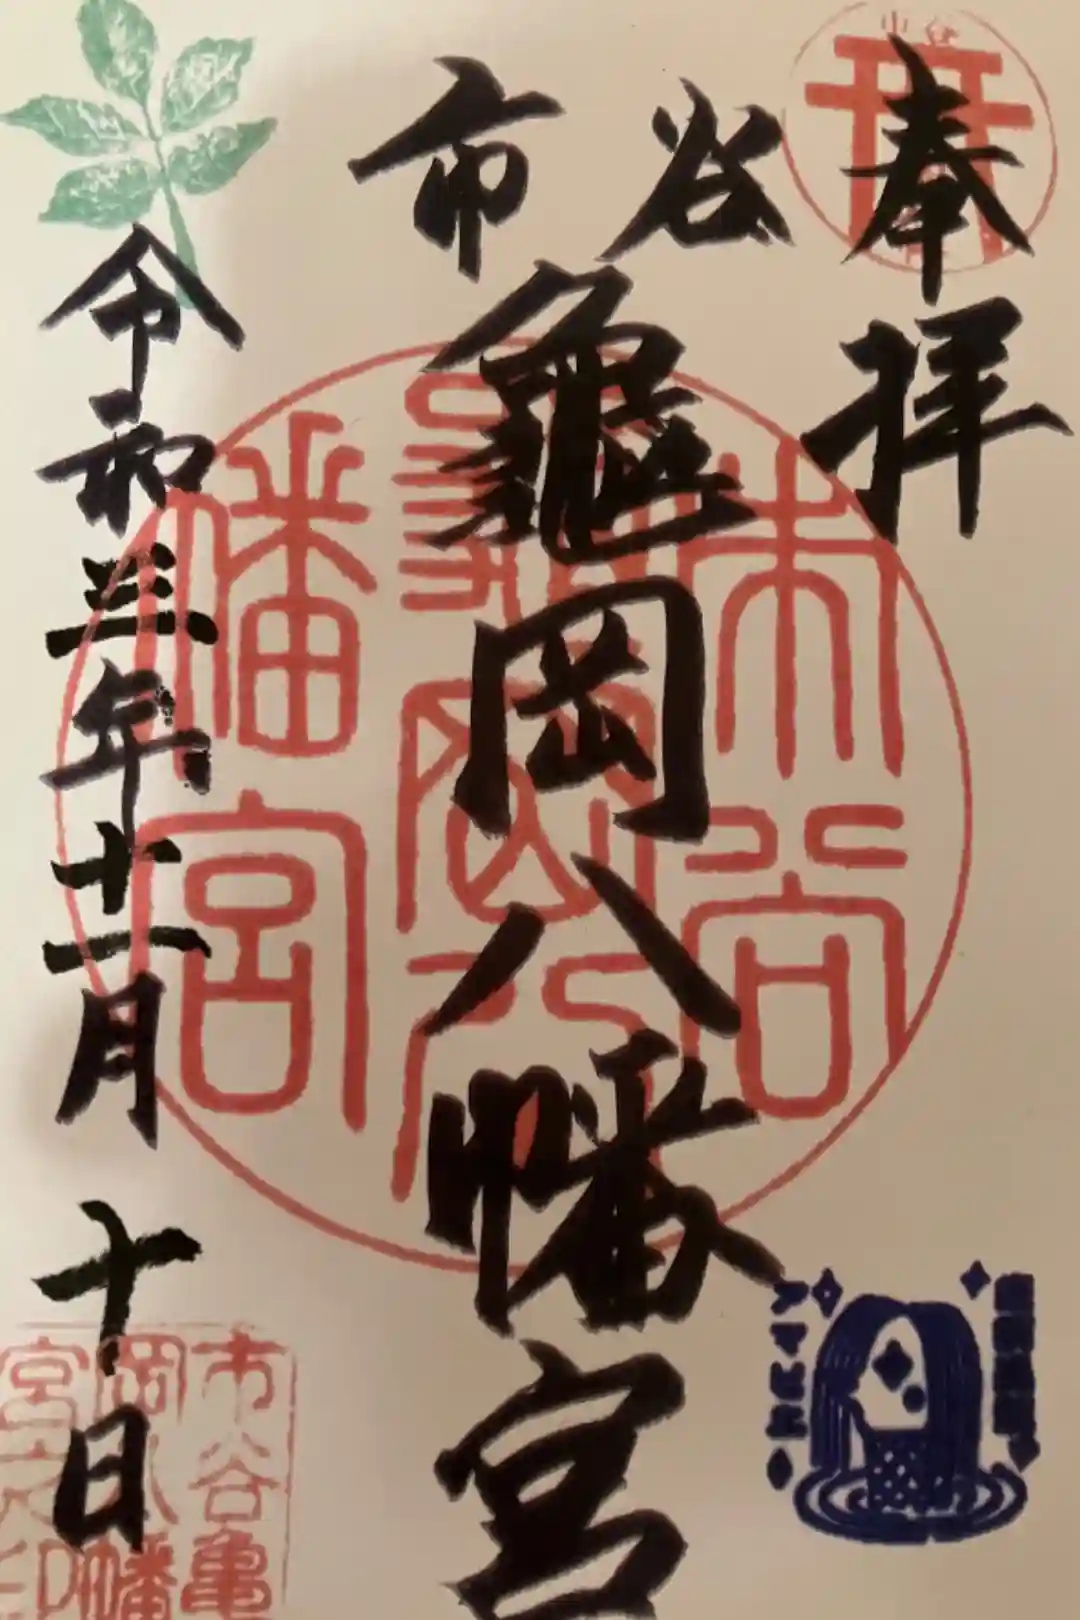 奉拝
市谷
龜岡八幡宮
令和三年十一月十日
市谷亀岡八幡宮
アマビエ
市谷亀
岡八幡
宮之印